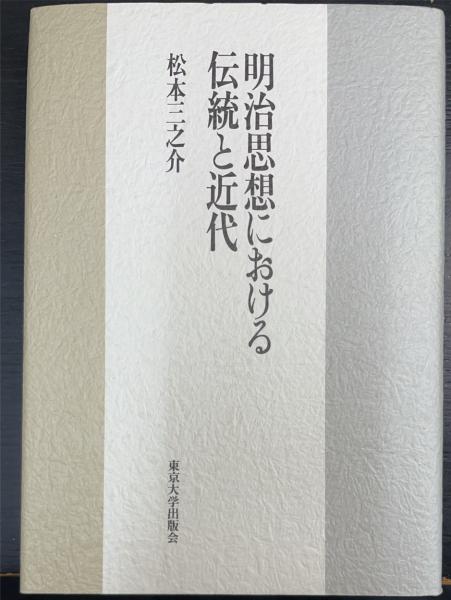 明治思想における
伝統と近代
松本三之介
東京大学出版会